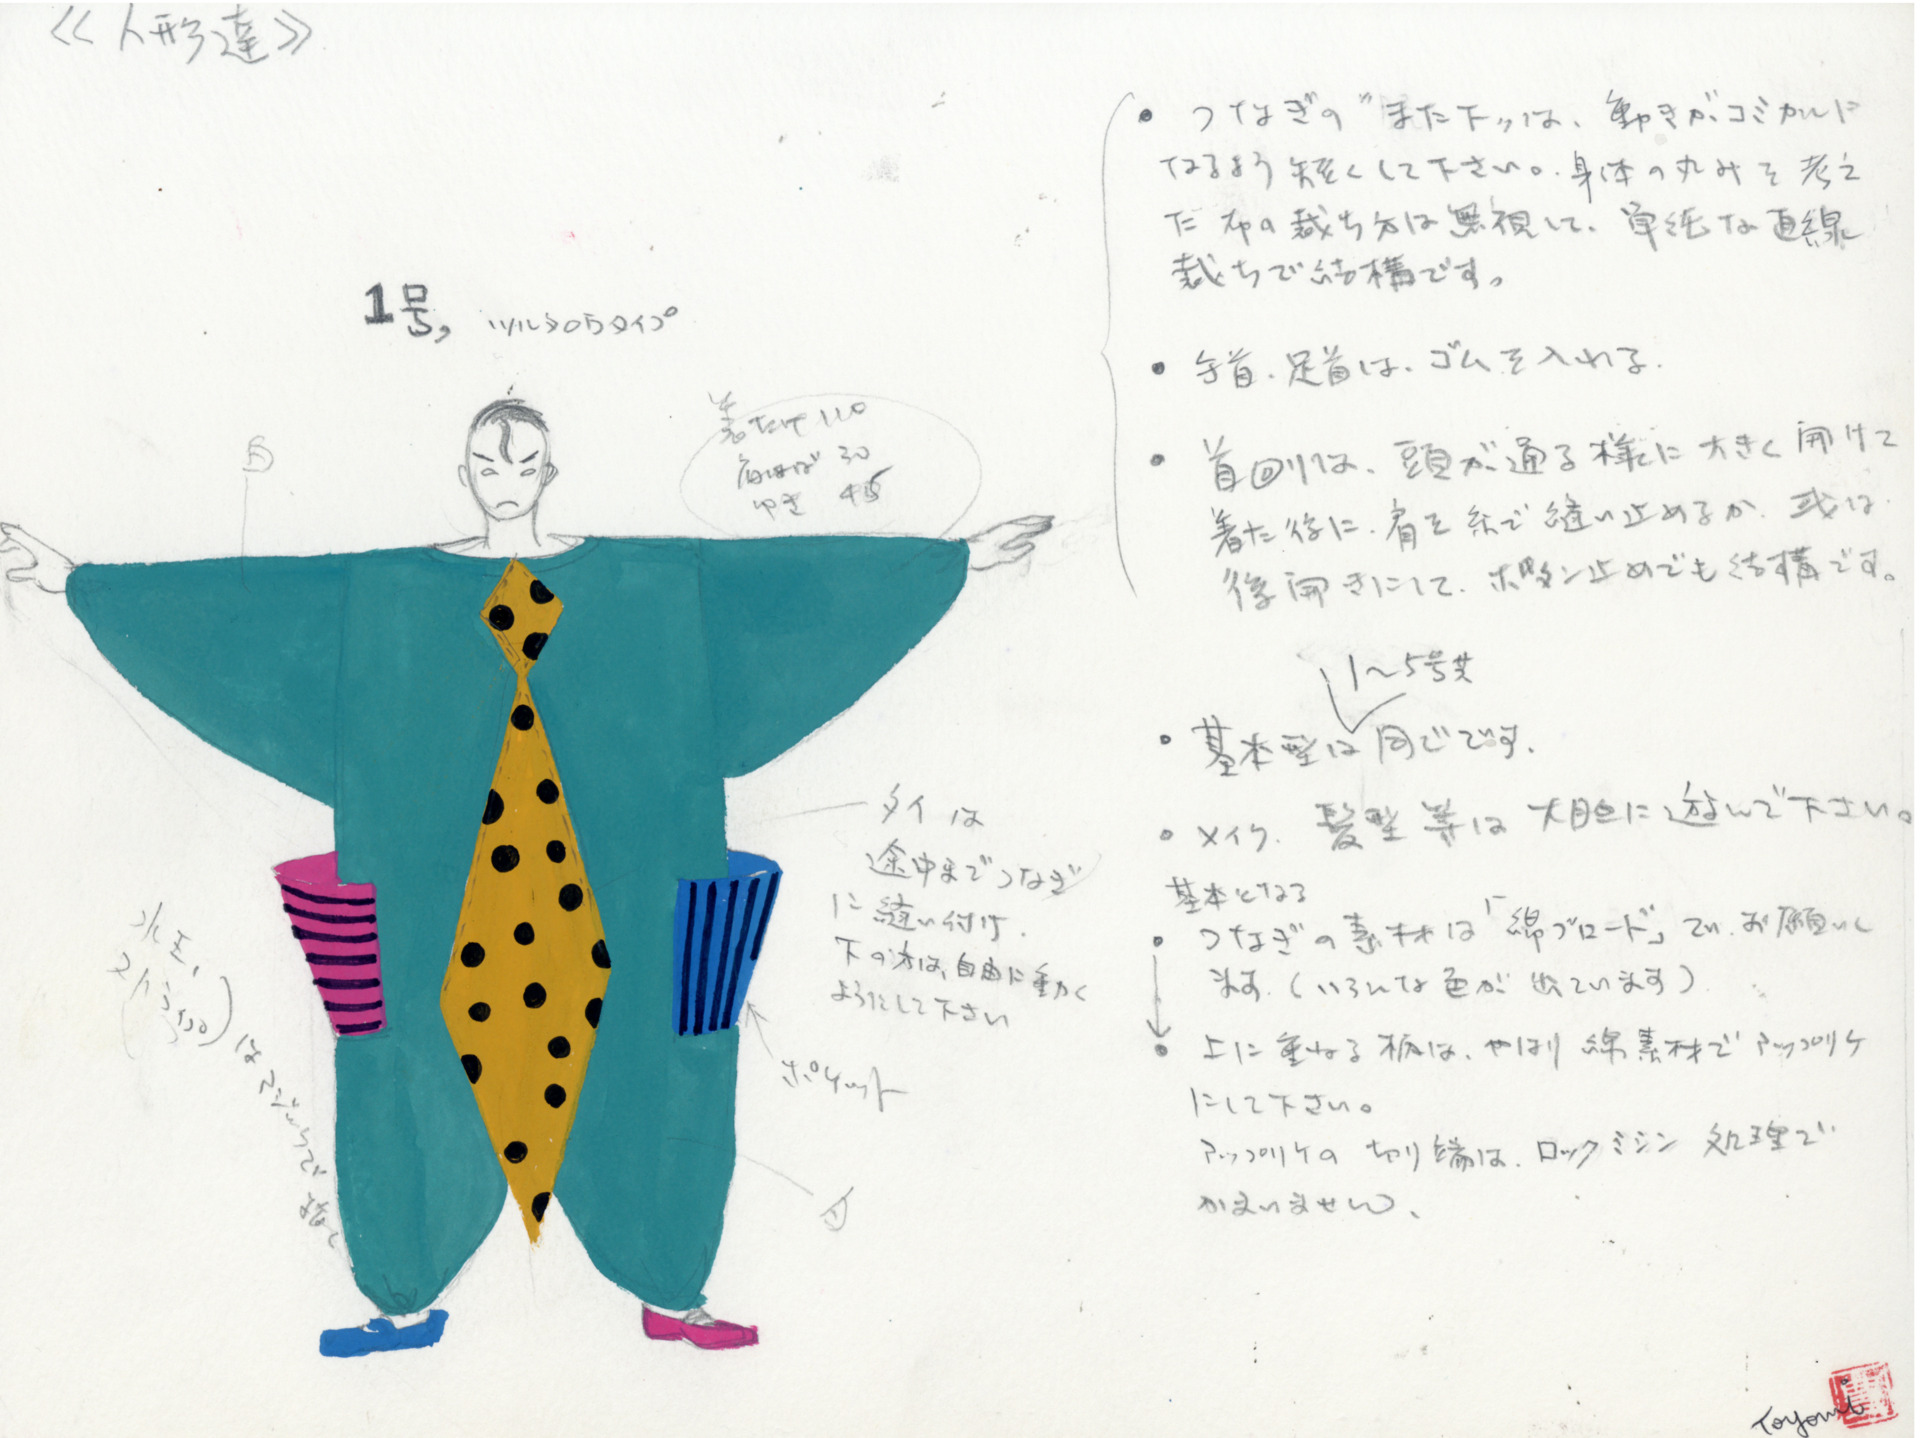 ≪人形達≫
1号, ツルタロウタイプ
着たけ110
肩はば 30
ゆき 45
タイは
途中までつなぎ
に縫い付け.
下の方は、自由に動く
ようにして下さい
ポケット
水玉,
はマジックで
・つなぎの〝また下〟は、動きがコミカルに
なるよう短くして下さい。身体の丸みを考え
た布の裁ち方は無視して、単純な直線
裁ちで結構です。
・手首、足首は、ゴムを入れる.
・首回りは、頭が通る様に大きく開けて
着た後に、肩を糸で縫い止めるか、或は
後開きにして、ボタン止めでも結構です。
1〜5号共
・基本型は同じです.
・メイク、髪型等は大胆に遊んで下さい。
基本となる
・つなぎの素材は「綿ブロード」でお願いし
ます.(いろんな色が出ています)
・上に重ねる柄は、やはり綿素材でアップリケ
にして下さい。
アップリケの切り端は、ロックミシン処理で
かまいません、
Toyomi